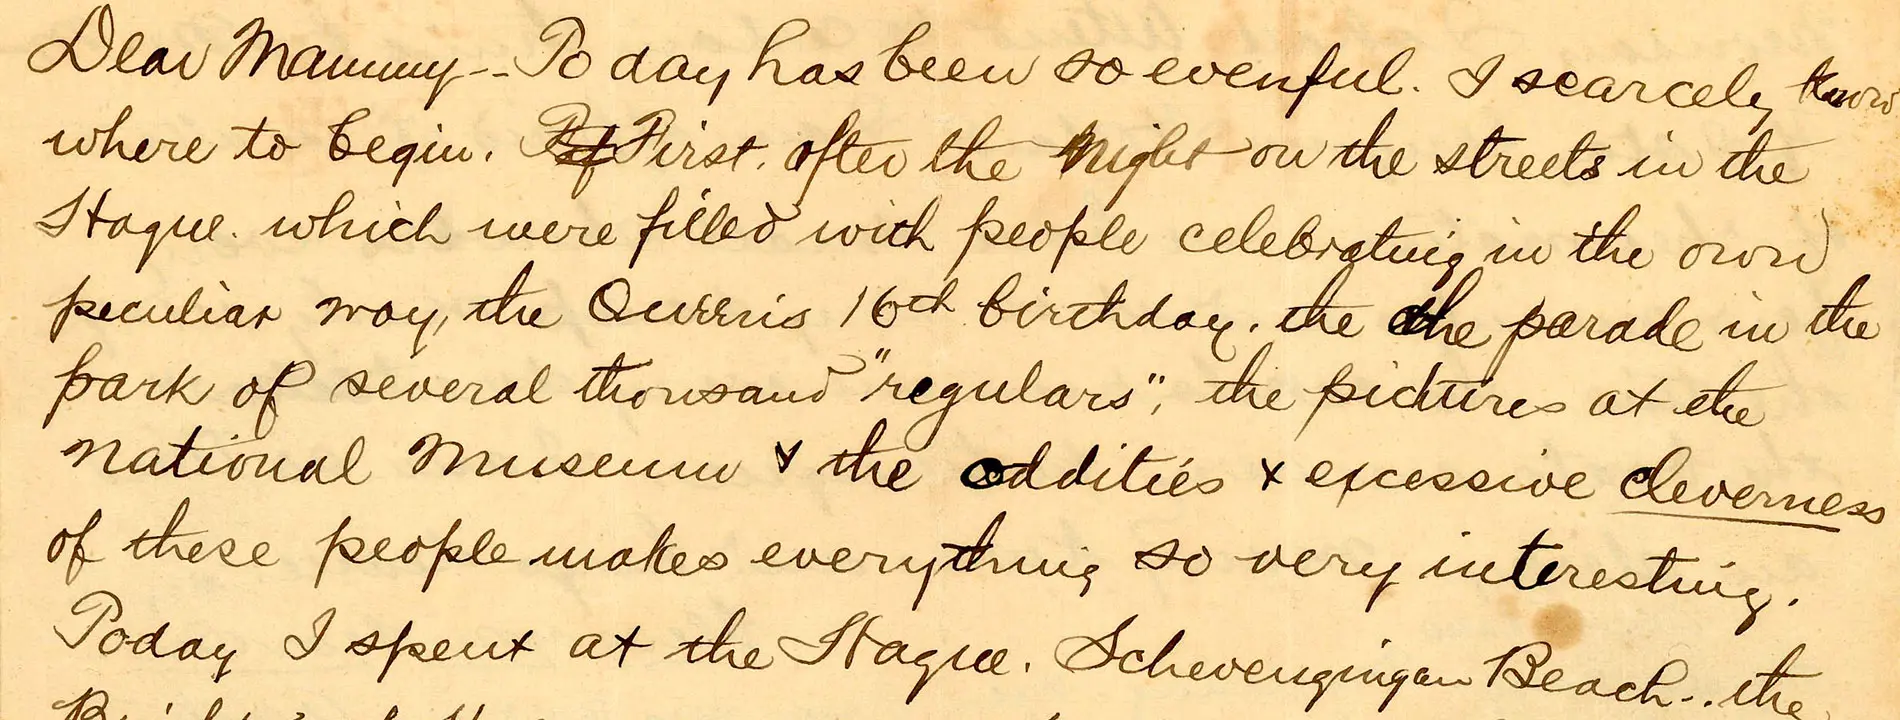 Dear Mammy -- Today has been so evenful. I scarcely know
where to begin. First. after the night on the streets in the
Hague. which were filled with people celebrating in the own
peculiar way, the Queens 16th birthday. the the parade in the
park of several thousand "regulars", the pictures at the
National Museum & the oddities & excessive cleverness
of these people makes everything so very interesting.
Today I spent at the Hague. Schevengingan Beach.. the